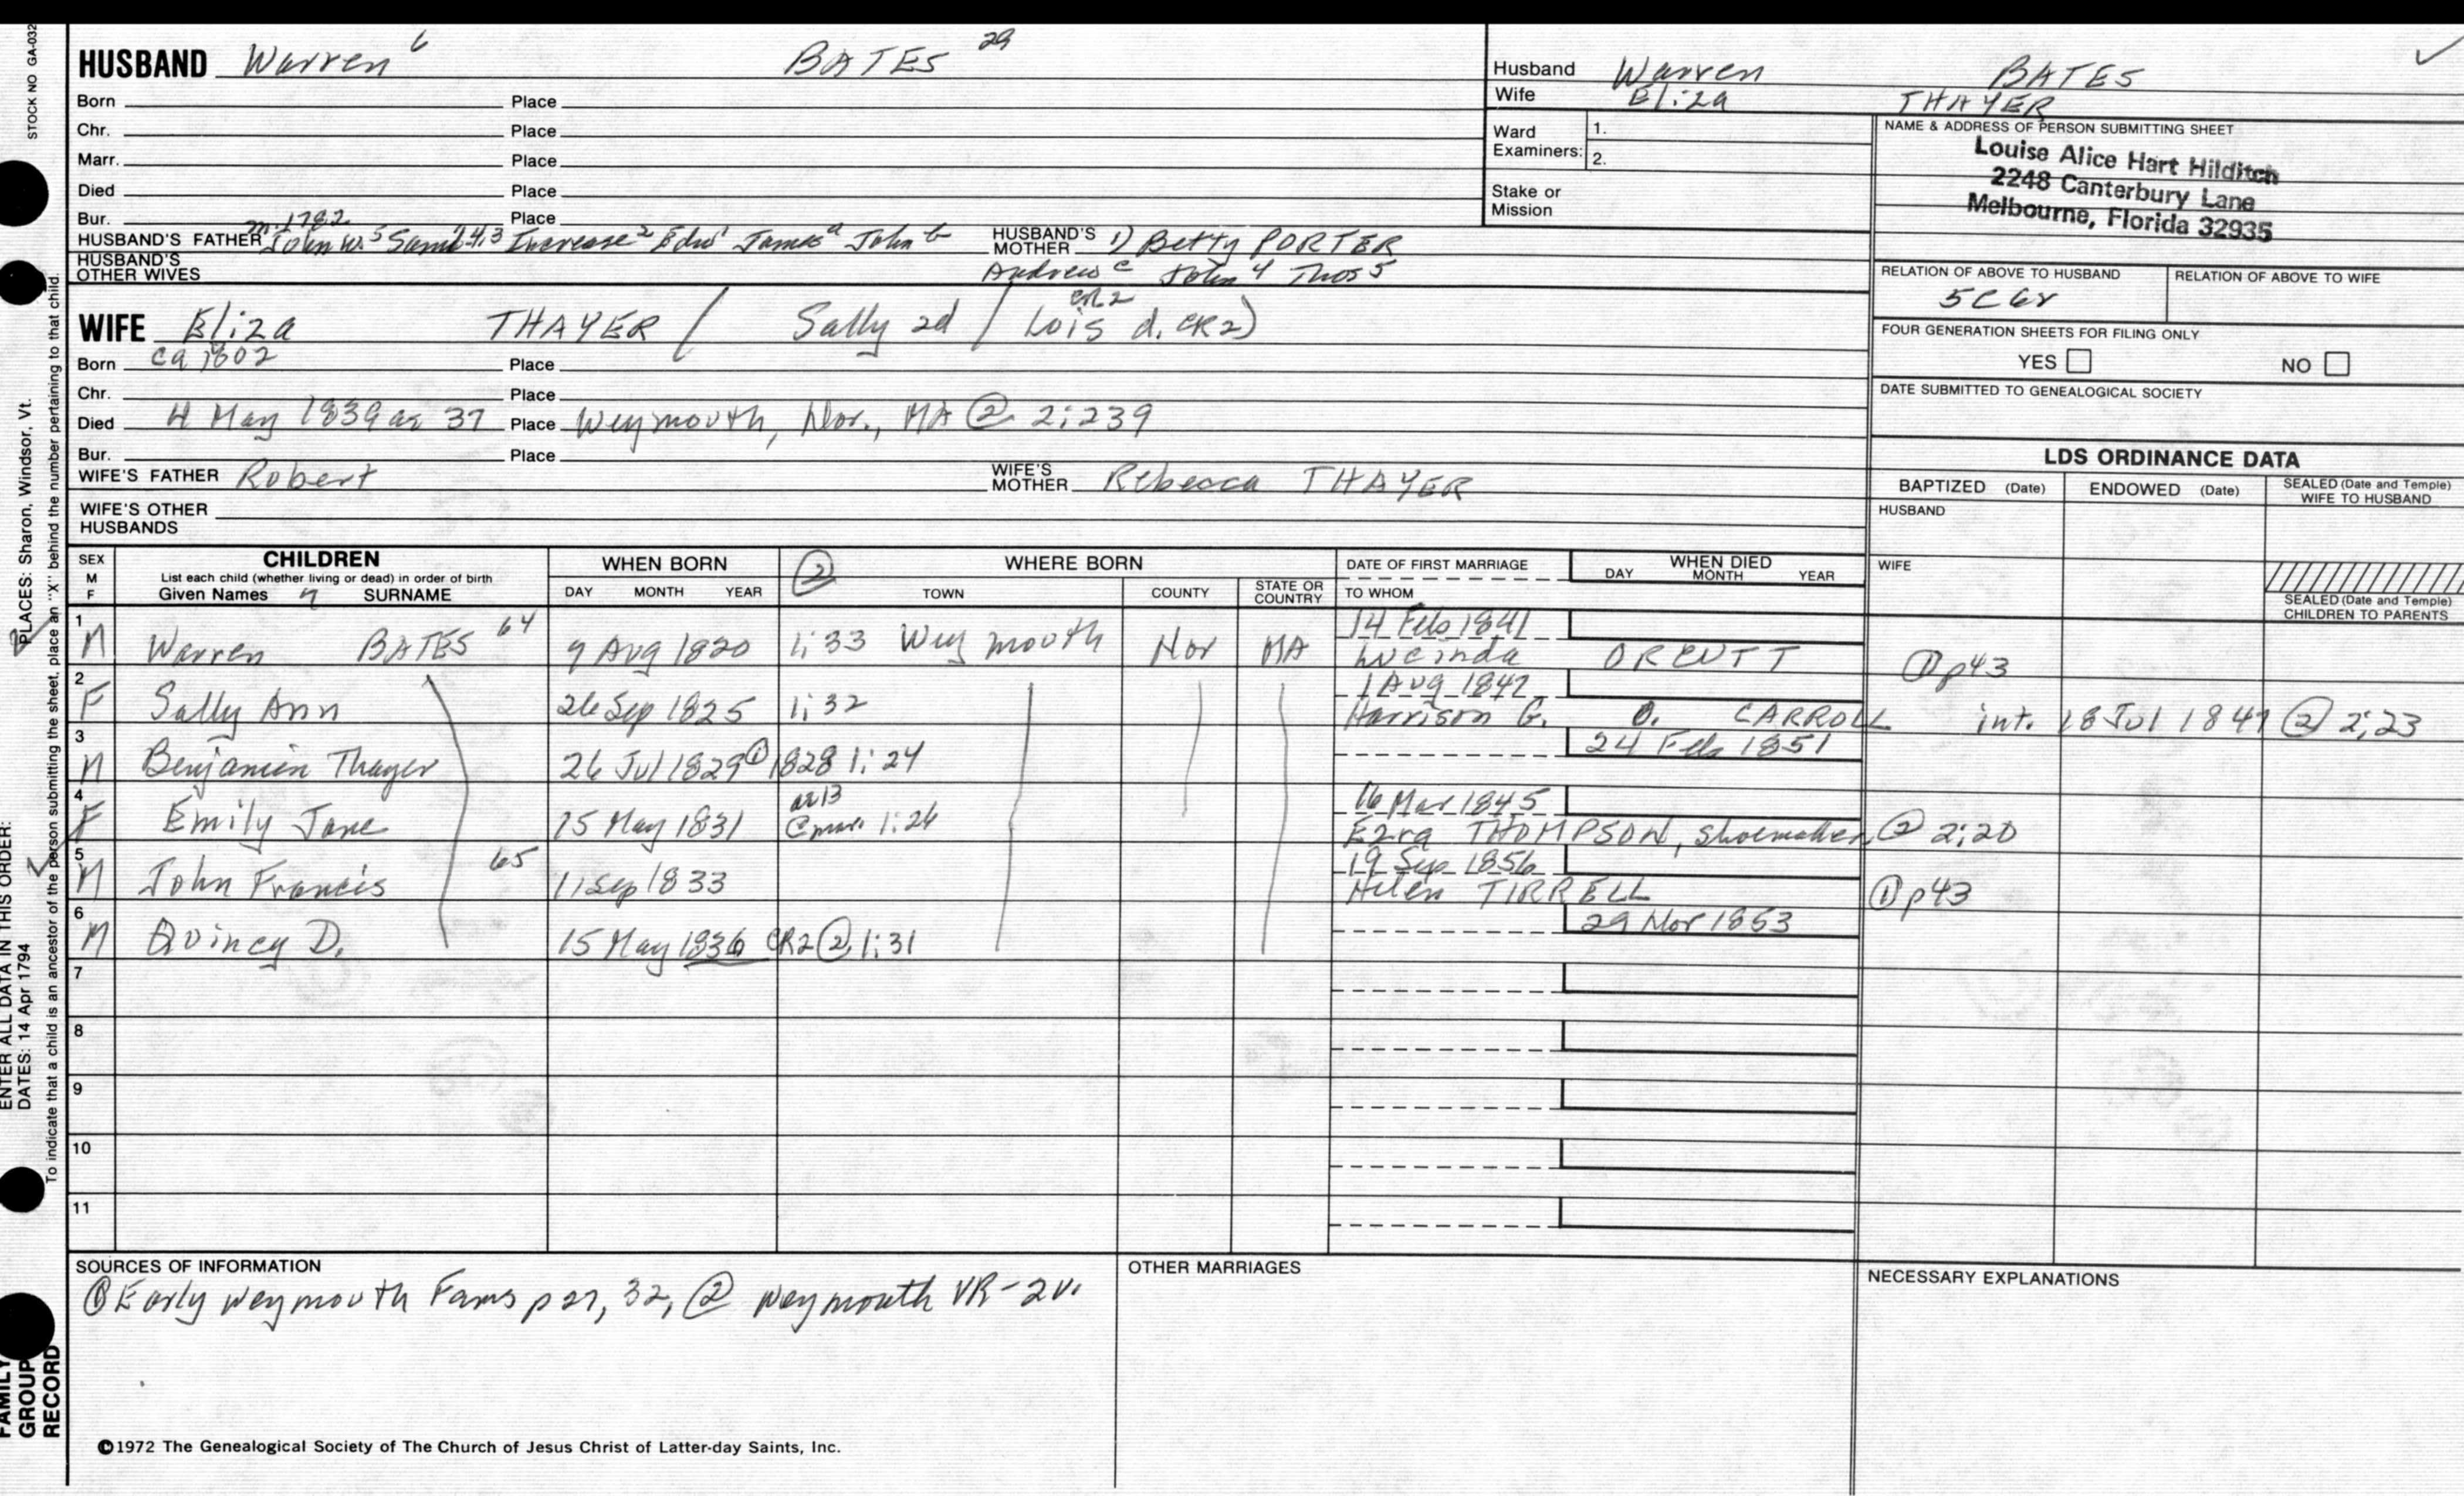 STOCK NO GA-032
HUSBAND Warren 6 BATES 29
Born Place
Chr. Place
Marr. Place
Died Place
Bur. Place
m. 1782
HUSBAND'S FATHER John W. 5 Saml 4,3 Increase 2 Edw 1 James a John b HUSBAND'S MOTHER 1) Betty PORTER
HUSBAND'S OTHER WIVES Andrew c John 4 Thos 5
CR2
WIFE Eliza THAYER / Sally 2d / Lois d. CR2)
Born ca 1802 Place
Chr. Place
Died 4 May 1839 ae 37 Place Weymouth, Nor., MA ② 2:239
Bur. Place
WIFE'S FATHER Robert WIFE'S MOTHER Rebecca THAYER
WIFE'S OTHER HUSBANDS
Husband Warren BATES
Wife Eliza THAYER
Ward Examiners: 1.
2.
Stake or Mission
NAME & ADDRESS OF PERSON SUBMITTING SHEET
Louise Alice Hart Hilditch
2248 Canterbury Lane
Melbourne, Florida 32935
RELATION OF ABOVE TO HUSBAND RELATION OF ABOVE TO WIFE
5C6r
FOUR GENERATION SHEETS FOR FILING ONLY
YES NO
DATE SUBMITTED TO GENEALOGICAL SOCIETY
LDS ORDINANCE DATA
BAPTIZED (Date) ENDOWED (Date) SEALED (Date and Temple) WIFE TO HUSBAND
HUSBAND
WIFE
SEALED (Date and Temple) CHILDREN TO PARENTS
SEX M F CHILDREN WHEN BORN ② WHERE BORN DATE OF FIRST MARRIAGE WHEN DIED
List each child (whether living or dead) in order of birth DAY MONTH YEAR
Given Names 7 SURNAME DAY MONTH YEAR TOWN COUNTY STATE OR COUNTRY TO WHOM
1 14 Feb 1841
M Warren BATES 64 9 Aug 1820 1:33 Weymouth Nor MA Lucinda ORCUTT ① p43
2 1 Aug 1847
F Sally Ann 26 Sep 1825 1:32 Harrison G. O. CARROLL int. 18 Jul 1847 ② 2:23
3 24 Feb 1851
M Benjamin Thayer 26 Jul 1829 ① 1828 1:24
4 ae 13 16 Mar 1845
F Emily Jane 15 May 1831 @mar. 1:26 Ezra THOMPSON, shoemaker ② 2:20
5 19 Sep 1856
M John Francis 65 11 Sep 1833 Helen TIRRELL ① p43
6 29 Nov 1853
M Quincy D. 15 May 1836 CR2 ② 1:31
7
8
9
10
11
SOURCES OF INFORMATION
① Early Weymouth Fams p 27, 32, ② Weymouth VR-2v.
OTHER MARRIAGES
NECESSARY EXPLANATIONS
©1972 The Genealogical Society of The Church of Jesus Christ of Latter-day Saints, Inc.
ENTER ALL DATA IN THIS ORDER:
DATES: 14 Apr 1794 PLACES: Sharon, Windsor, Vt.
To indicate that a child is an ancestor of the person submitting the sheet, place an "X" behind the number pertaining to that child.
FAMILY GROUP RECORD